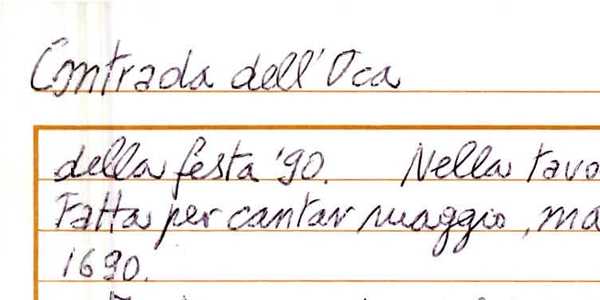 Contrada dell'Oca
della festa '90. Nella tavo
Fatta per cantar maggio, ma
1690.